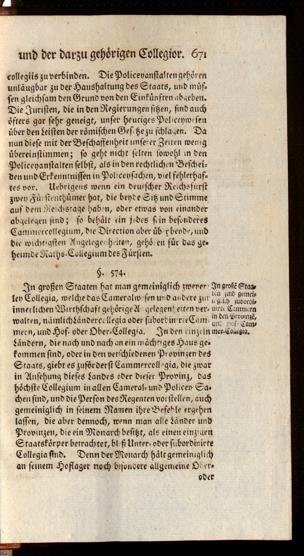 und der darzu gehörigen Collegior. 671
collegiis zu verbinden. Die Policeyanstalten gehören
unläugbar zu der Haushaltung des Staats, und müs-
sen gleichsam den Grund von den Einkünften abgeben.
Die Juristen, die in den Regierungen sitzen, sind auch
öfters gar sehr geneigt, unser heutiges Policeywesen
über den leisten der römischen Gesetze zu schlagen. Da
nun diese mit der Beschaffenheit unserer Zeiten wenig
übereinstimmen; so geht nicht selten sowohl in den
Policeyanstalten selbst, als in den rechtlichen Beschei-
den und Erkenntnissen in Policeysachen, viel fehlerhaf-
tes vor. Uebrigens wenn ein deutscher Reichsfürst
zwey Fürstenthümer hat, die beyde Sitz und Stimme
auf dem Reichstage haben, oder etwas von einander
abgelegen sind; so behält ein jedes sein besonderes
Cammercollegium, die Direction aber über beyde, und
die wichtigsten Angelegenheiten, gehören für das ge-
heimde Raths-Collegium des Fürsten.
§. 574.
In großen Staaten hat man gemeiniglich zweyer-
ley Collegia, welche das Cameralwesen und andere zur
innerlichen Wirthschaft gehörige Angelegenheiten ver-
walten, nämlich Länder collegia oder subordinirte Cam-
mern, und Hof- oder Ober-Collegia. In den einzeln
Ländern, die nach und nach an ein mächtiges Haus ge-
kommen sind, oder in den verschiedenen Provinzen des
Staats, giebt es zuförderst Cammercollegia, die zwar
in Ansehung dieses Landes oder dieser Provinz, das
höchste Collegium in allen Cameral- und Policey-Sa-
chen sind, und die Person des Regenten vorstellen, auch
gemeiniglich in seinem Namen ihre Befehle ergehen
lassen, die aber dennoch, wenn man alle Länder und
Provinzen, die ein Monarch besitzt, als einen einzigen
Staatskörper betrachtet, bloß Unter- oder subordinirte
Collegia sind. Denn der Monarch hält gemeiniglich
an seinem Hoflager noch besondere allgemeine Ober-
oder
In große Staa-
ten sind gemei-
niglich subordi-
nirte Cammern
in den Provinzen,
und Hof-Cam-
mer-Collegia.